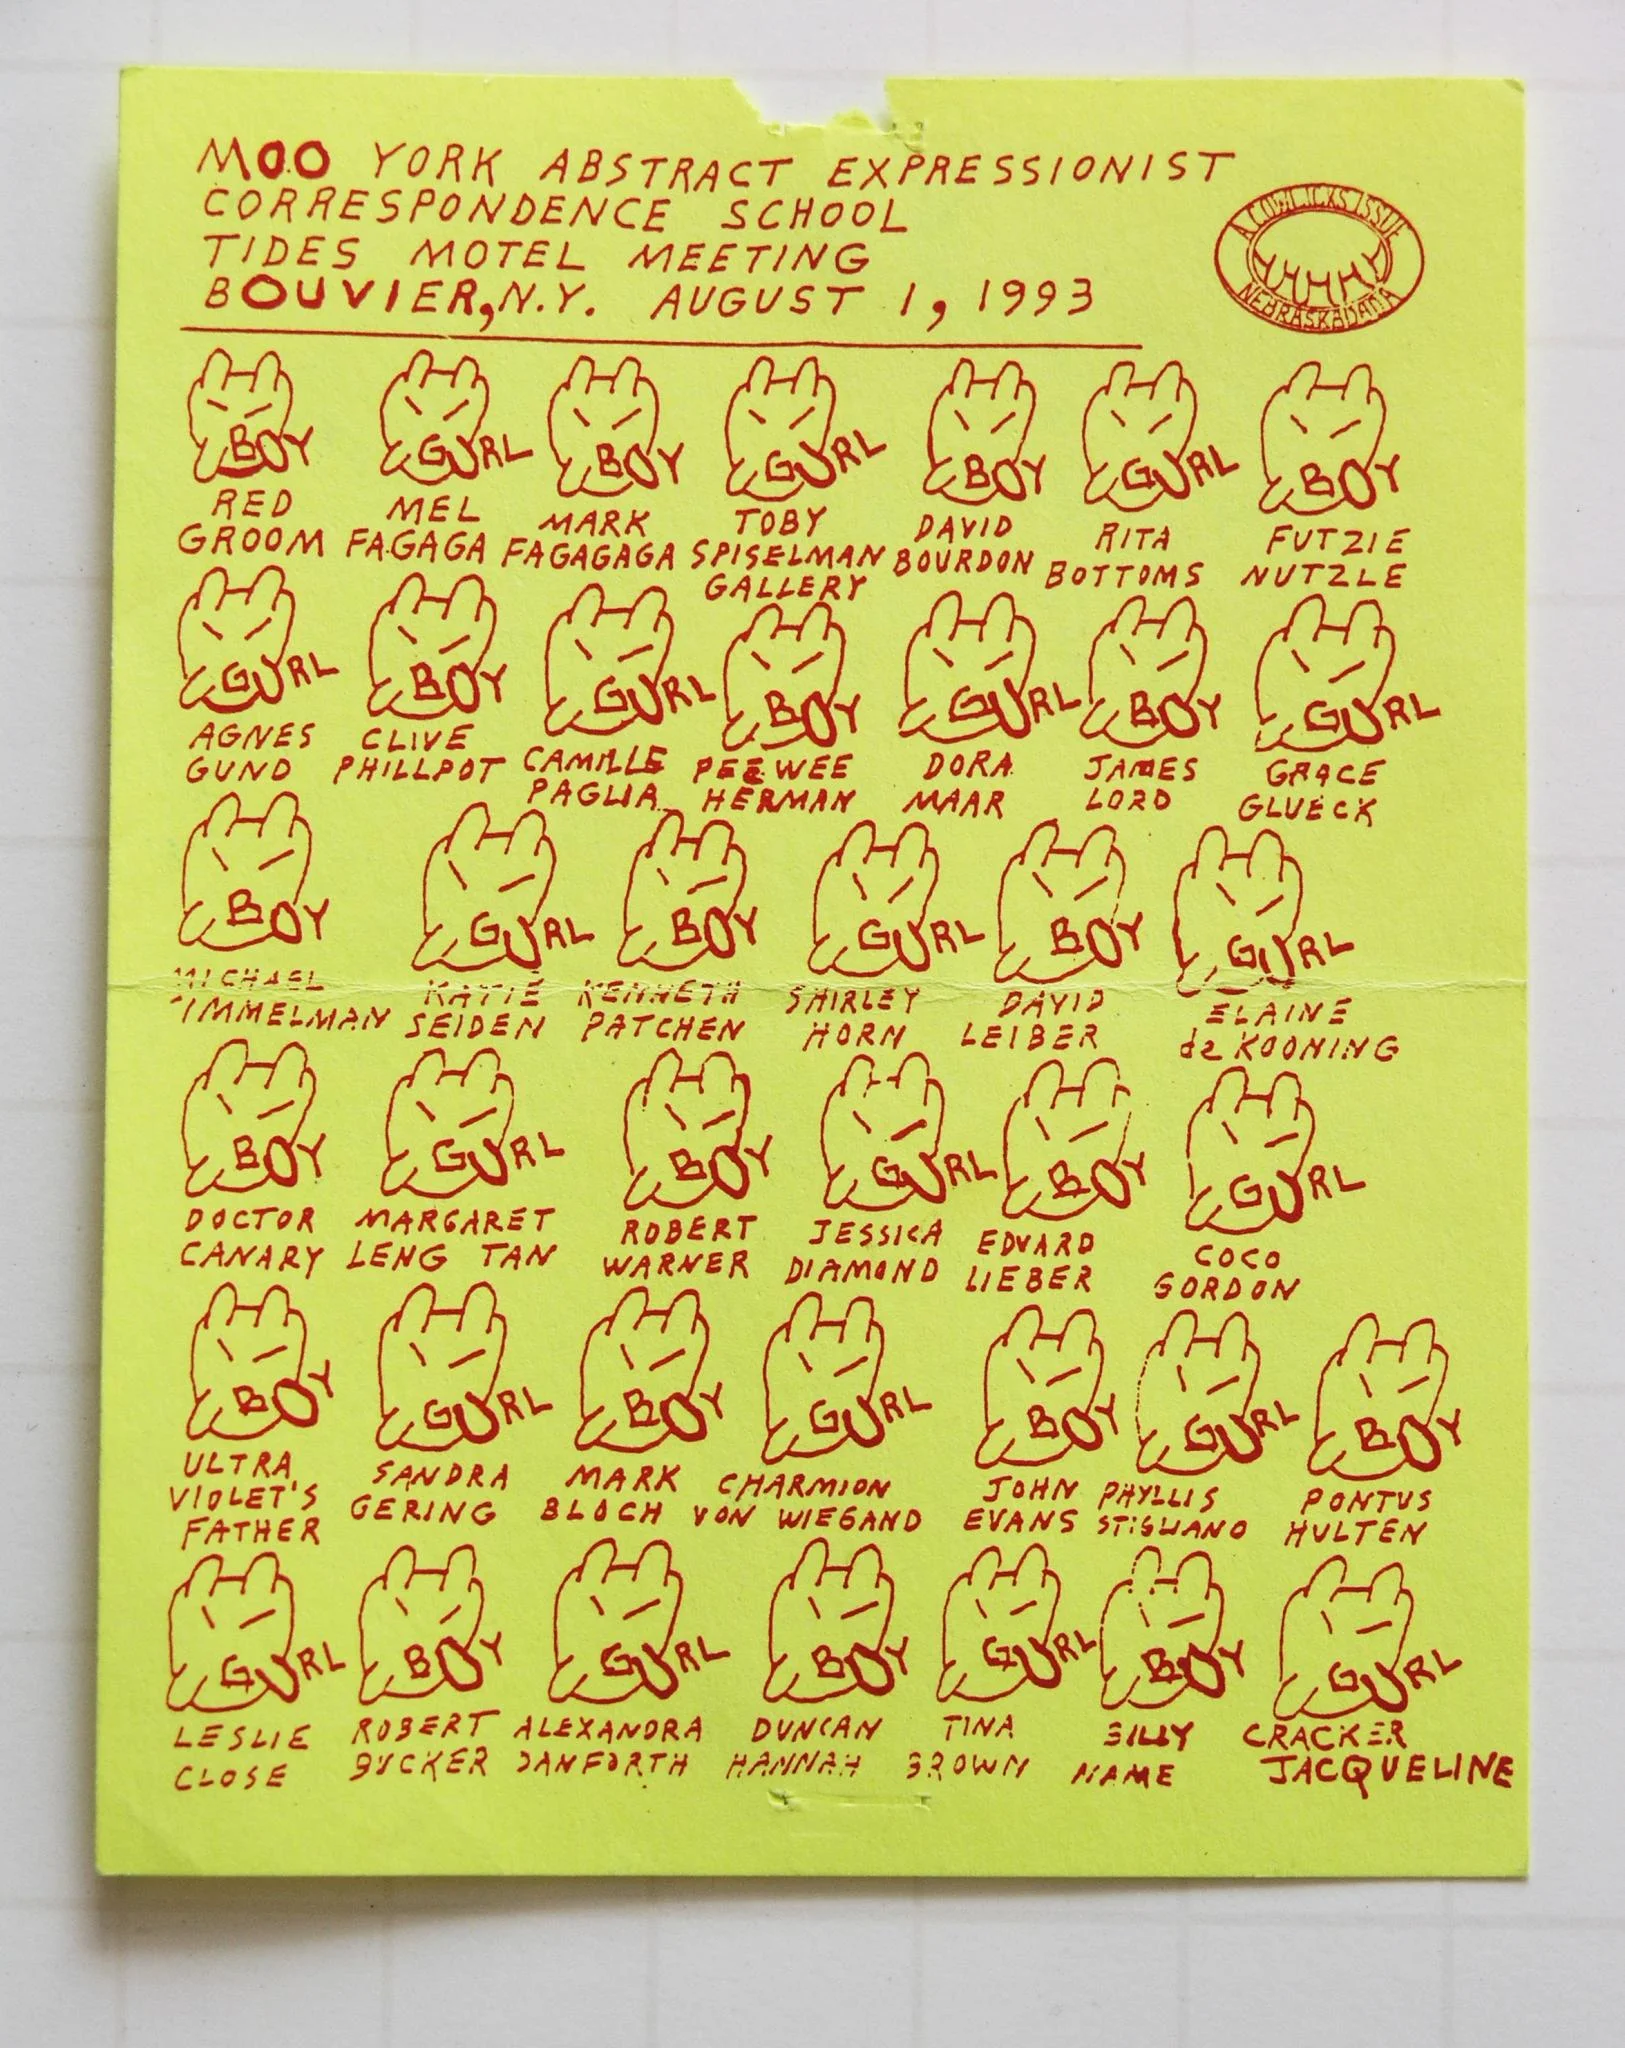 MOO YORK ABSTRACT EXPRESSIONIST
CORRESPONDENCE SCHOOL
TIDES MOTEL MEETING
BOUVIER, N.Y. AUGUST 1, 1993
A COW LICKS ISSUE
NEBRASKADADA
BOY GURL BOY GURL BOY GURL BOY
RED MEL MARK TOBY DAVID RITA FUTZIE
GROOM FAGAGA FAGAGAGA SPISELMAN BOURDON BOTTOMS NUTZLE
GALLERY
GURL BOY GURL BOY GURL BOY GURL
AGNES CLIVE CAMILLE PEEWEE DORA JAMES GRACE
GUND PHILLPOT PAGLIA HERMAN MAAR LORD GLUECK
BOY GURL BOY GURL BOY GURL
MICHAEL KATIE KENNETH SHIRLEY DAVID ELAINE
IMMELMAN SEIDEN PATCHEN HORN LEIBER de KOONING
BOY GURL BOY GURL BOY GURL
DOCTOR MARGARET ROBERT JESSICA EDVARD COCO
CANARY LENG TAN WARNER DIAMOND LIEBER GORDON
BOY GURL BOY GURL BOY GURL BOY
ULTRA SANDRA MARK CHARMION JOHN PHYLLIS PONTUS
VIOLET'S GERING BLOCH VON WIEGAND EVANS STIGLIANO HULTEN
FATHER
GURL BOY GURL BOY GURL BOY GURL
LESLIE ROBERT ALEXANDRA DUNCAN TINA BILLY CRACKER
CLOSE BUCKER DANFORTH HANNAH BROWN NAME JACQUELINE